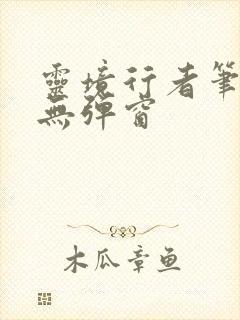 靈境行者筆
無彈窗
木瓜章鱼